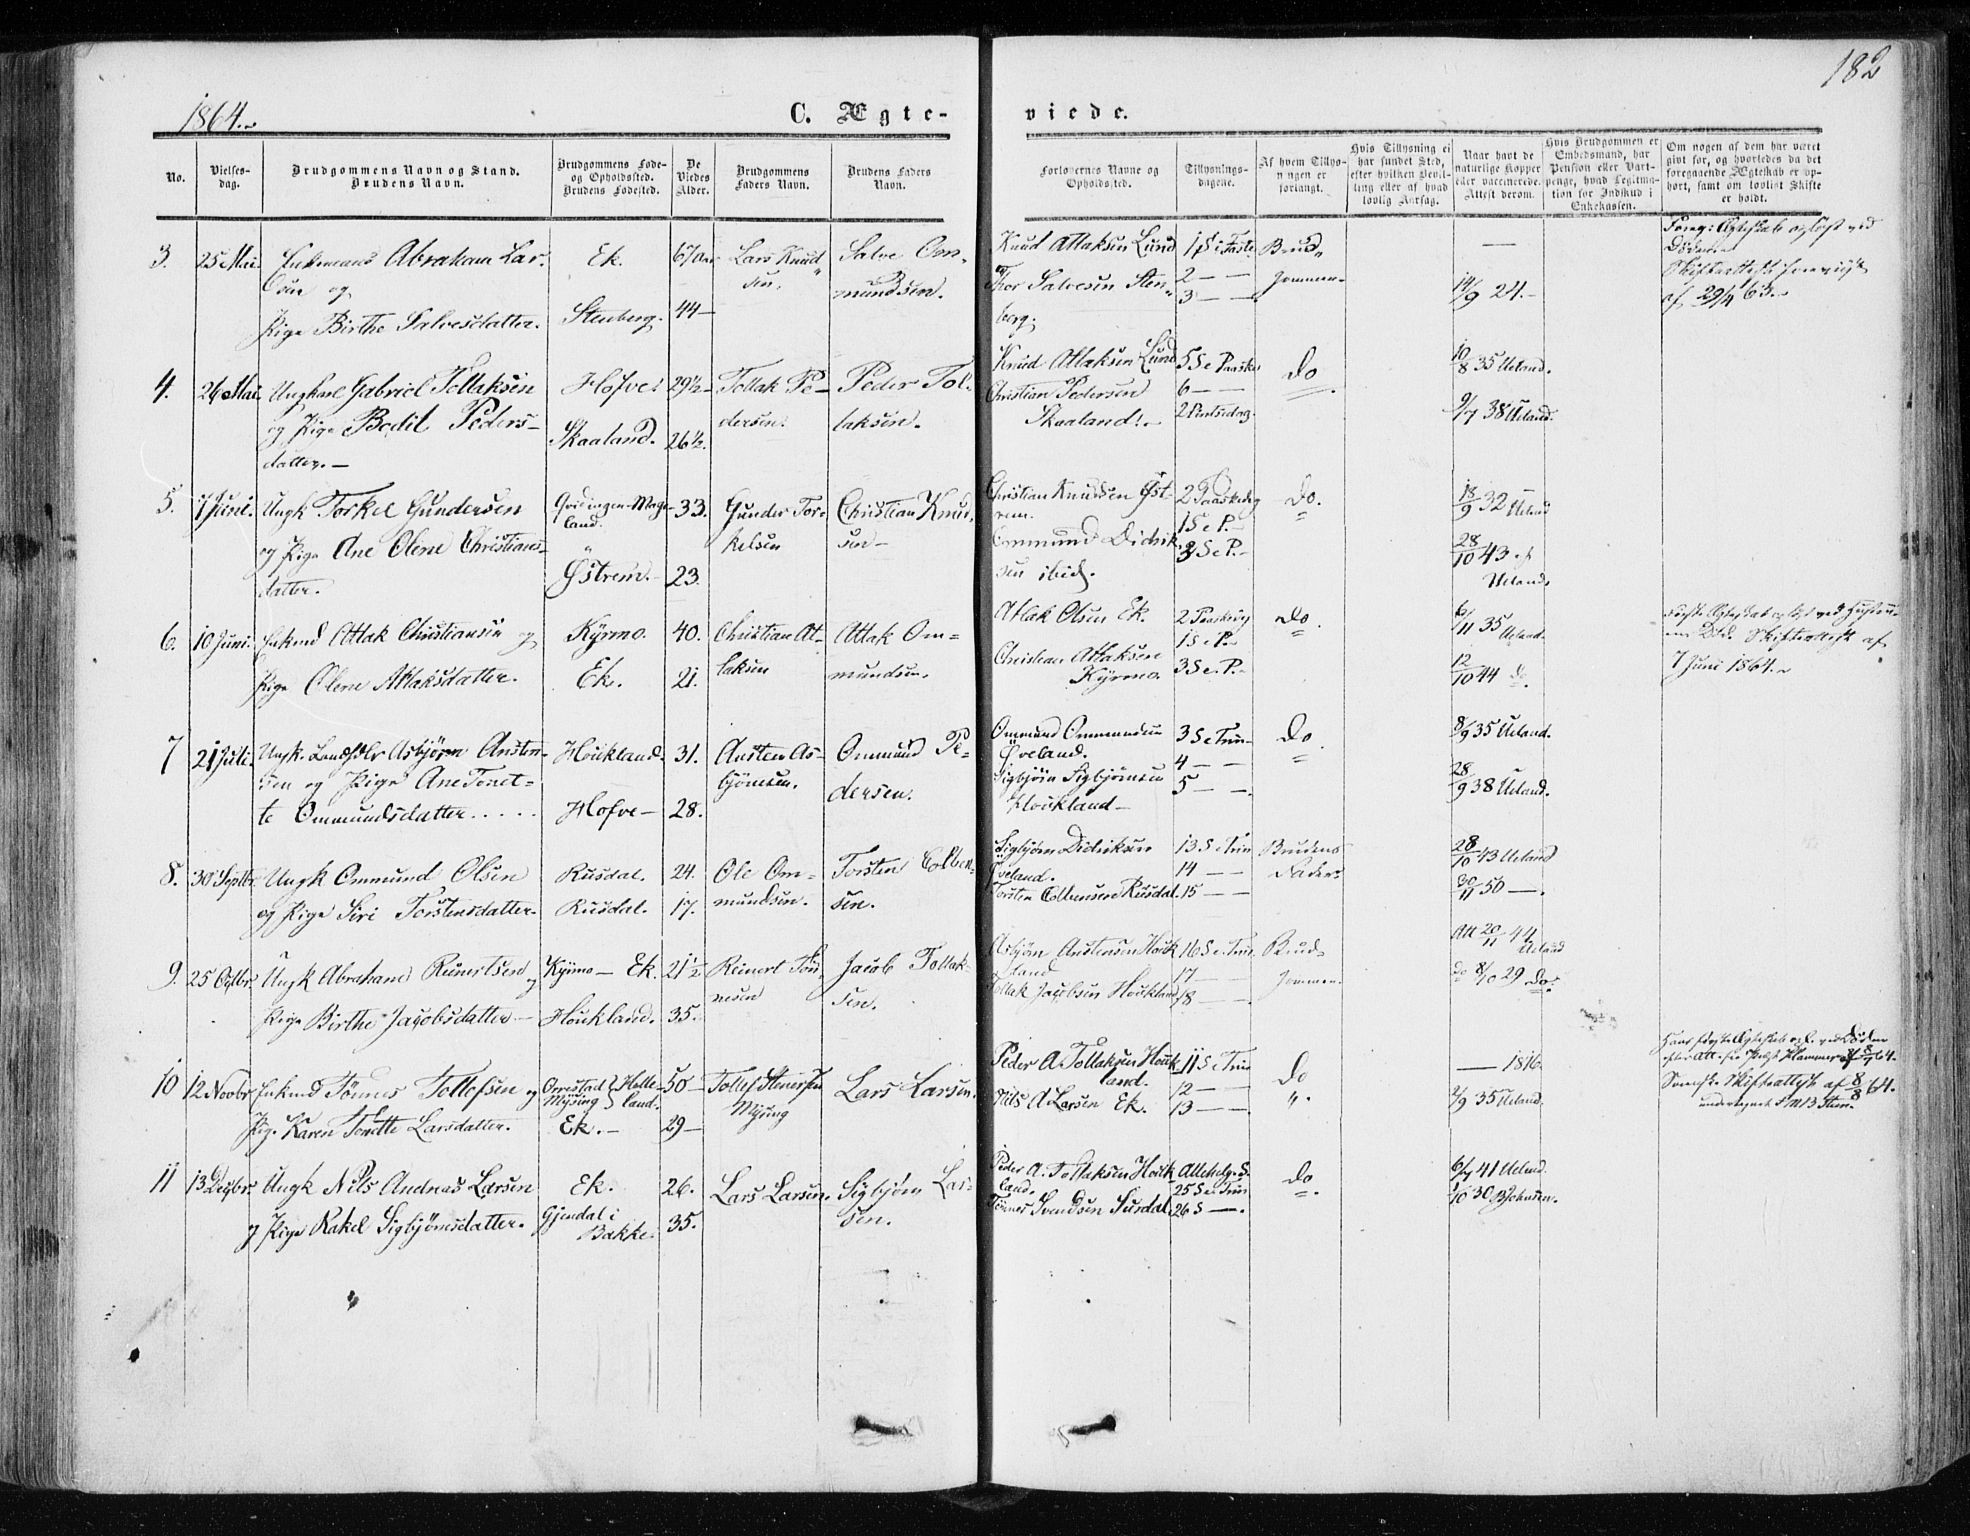 182
1864.
C. Ægte-
viede.
No.
Vielses-
dag.
Brudgommens Navn og Stand.
Brudens Navn.
Brudgommens Føde-
og Opholdssted.
Brudens Fødested.
De
Viedes
Alder.
Brudgommens
Faders Navn.
Brudens Faders
Navn.
Forlovernes Navne og
Opholdssted.
Tillysnings-
dagene.
Af hvem Tillys-
ningen er
forlangt.
Hvis Tillysning ei
har fundet Sted,
efter hvilken Bevil-
ling eller af hvad
lovlig Aarsag.
Naar havt de
naturlige Kopper
eller vaccinerede.
Attest derom.
Hvis Brudgommen er
Embedsmand, har
Pension eller Vart-
penge, hvad Legitima-
tion for Indskud i
Enkekassen.
Om nogen af dem har været
gift før, og hvorledes da det
foregaaende Ægteskab er op-
hørt, samt om lovligt Skifte
er holdt.
3. 25 Mai. Enkemand Abraham Lar-
sen og
Pige Birthe Salvesdatter.
Ek.
Stenberg.
44
Lars Knud-
sen.
Salve Om-
mundsen.
Knud Atlaksen Lund
Thor Salvesen Sten-
berg.
2 — —
3 — —
Brud-
gommen
14/9 24.
Døden.
af 29/4 63.
4. 26 Mai. Ungkarl Gabriel Tollaksen
og Pige Bodil Peders-
datter.
Hofve.
Skaaland.
29½
26½.
Tollak Pe-
dersen.
Peder Tol-
laksen.
Knud Atlaksen Lund
Christian Pedersen
Skaaland.
5 S e Paaske
6 —
2 Pintsedag.
Do
10/8 35 Ueland.
9/7 38 Ueland.
5. 7 Juni. Ungk Torkel Gundersen
og Pige Ane Olene Christians-
datter.
land.
Østrem.
33.
23.
Gunder Tor-
kelsen
Christian Knud-
sen
Christian Knudsen Øst-
rem.
Ommund Didrik-
sen ibid.
2 Paaskedag
1 S e P.
3 S e P.
Do.
18/9 32 Ueland
28/10 43 af
Ueland.
6. 10 Juni. Enkmd Atlak Christiansen og
Pige Olene Atlaksdatter.
Kyrmo.
Ek.
40.
21.
Christian At-
laksen
Atlak Om-
mundsen.
Atlak Olsen Ek.
Christian Atlaksen
Kyrmo.
2 Paaskdg
1 S e P.
3 S e P.
Do.
6/11 35 Ueland.
12/10 44 do.
7 Juni 1864.
7 21 Juli. Ungk. Asbjørn Ansten-
sen og Pige Ane Tonet-
te Ommundsdatter.....
Houkland.
Hofve
31.
28.
Ansten As-
bjørnsen.
Ommund Pe-
dersen.
Ommund Ommundsen
Øveland.
Sigbjørn Sigbjørnsen
Houkland
3 S e Trin
4 — —
5 — —.
Do
8/9 35 Ueland.
28/9 38 Ueland.
8. 30 Septbr. Ungk Ommund Olsen
og Pige Siri Torstensdatter.
Rusdal.
Rusdal.
24.
17.
Ole Om-
mundsen.
Torsten Colben-
sen.
Sigbjørn Didriksen
Øveland.
Torsten Colbensen Rusdal.
13 S e Trin
14 — —
15 — —
Brudens
Fader.
28/10 43 Ueland
30/11 50 —.
9. 25 Octbr. Ungk Abraham Reinertsen og
Pige Birthe Jacobsdatter
Kyrmo — Ek.
Houkland.
21½
35.
Reinert Tøn-
nesen
Jacob Tollak-
sen.
Asbjørn Anstensen Houk-
land
Tollak Jacobsen Houkland
16 S e Trin.
17 — —
18 — —
Brud-
gommen
Att 20/11 44
Ueland
do 8/10 29 do.
10 12 Novbr Enkmd Tønnes Tollefsen og
Pige Karen Tonette Larsdatter.
Orrestad
Mysing } Helle-
land.
Ek.
50
29
Tollef Stenersen
Mysing
Lars Larsen.
Peder A. Tollaksen Houk-
land.
Nils A Larsen Ek.
11 S e Trin
12 — —
13 — —
Do
— 1816.
2/9 35 Ueland.
af 8/8 64.
11 13 Decbr. Ungk Nils Andreas Larsen
og Pige Rakel Sigbjørnsdatter.
Ek.
Gjendal i
Bakke.
26.
35.
Lars Larsen.
Sigbjørn Lar-
sen.
Peder A. Tollaksen Houk-
land.
Tønnes Svendsen Surdal.
Allehelg. S.
25 S e Trin
26 S —.
Do.
6/7 41 Ueland.
1/10 30 BJohnsen.